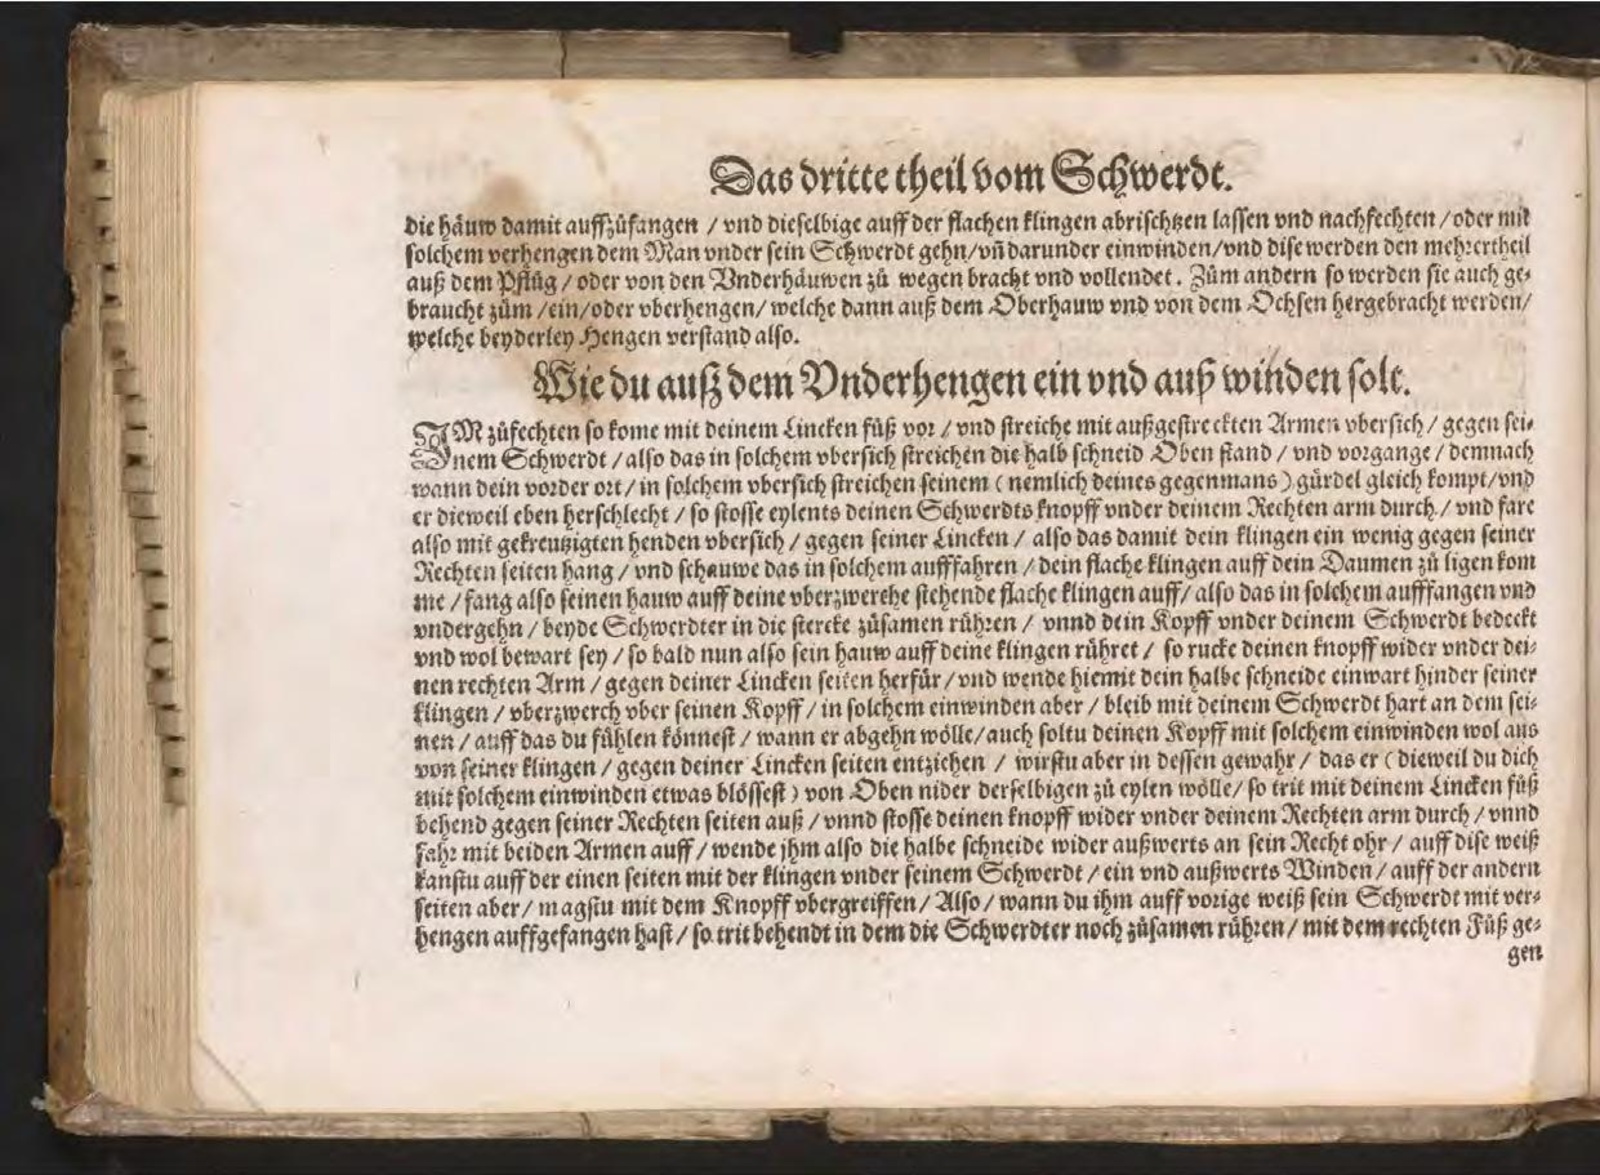 Das dritte theil vom Schwerdt.
die häuw damit auffzůfangen / vnd dieselbige auff der flachen klingen abrischtzen lassen vnd nachfechten / oder mit
solchem verhengen dem Man vnder sein Schwerdt gehn/vñ darunder einwinden/vnd dise werden den mehrertheil
auß dem Pflůg / oder von den Vnderhäuwen zů wegen bracht vnd vollendet. Zům andern so werden sie auch ge-
braucht zům /ein/oder vberhengen/ welche dann auß dem Oberhauw vnd von dem Ochsen hergebracht werden/
welche beyderley Hengen verstand also.
Wie du auß dem Vnderhengen ein vnd auß winden solt.
IM zůfechten so kome mit deinem Lincken fůß vor / vnd streiche mit außgestreckten Armen vbersich / gegen sei-
nem Schwerdt / also das in solchem vbersich streichen die halb schneid Oben stand / vnd vorgange / demnach
wann dein vorder ort / in solchem vbersich streichen seinem ( nemlich deines gegenmans ) gürdel gleich kompt/vnd
er dieweil eben herschlecht / so stosse eylents deinen Schwerdts knopff vnder deinem Rechten arm durch / vnd fare
also mit gekreutzigten henden vbersich / gegen seiner Lincken / also das damit dein klingen ein wenig gegen seiner
Rechten seiten hang / vnd schauwe das in solchem aufffahren / dein flache klingen auff dein Daumen zů ligen kom
me / fang also seinen hauw auff deine vberzwerche stehende flache klingen auff/ also das in solchem aufffangen vnd
vndergehn / beyde Schwerdter in die stercke zůsamen rühren / vnnd dein Kopff vnder deinem Schwerdt bedeckt
vnd wol bewart sey / so bald nun also sein hauw auff deine klingen rühret / so rucke deinen knopff wider vnder dei-
nen rechten Arm / gegen deiner Lincken seiten herfür / vnd wende hiemit dein halbe schneide einwart hinder seiner
klingen / vberzwerch vber seinen Kopff / in solchem einwinden aber / bleib mit deinem Schwerdt hart an dem sei-
nen / auff das du fühlen könnest / wann er abgehn wölle/auch soltu deinen Kopff mit solchem einwinden wol aus
von seiner klingen / gegen deiner Lincken seiten entziehen / wirstu aber in dessen gewahr / das er ( dieweil du dich
mit solchem einwinden etwas blössest ) von Oben nider derselbigen zů eylen wölle/ so trit mit deinem Lincken fůß
behend gegen seiner Rechten seiten auß / vnnd stosse deinen knopff wider vnder deinem Rechten arm durch / vnnd
fahr mit beiden Armen auff / wende jhm also die halbe schneide wider außwerts an sein Recht ohr / auff dise weiß
kanstu auff der einen seiten mit der klingen vnder seinem Schwerdt / ein vnd außwerts Winden / auff der andern
seiten aber / magstu mit dem Knopff vbergreiffen / Also / wann du ihm auff vorige weiß sein Schwerdt mit ver-
hengen auffgefangen hast / so trit behendt in dem die Schwerdter noch zůsamen rühren / mit dem rechten Fůß ge-
gen